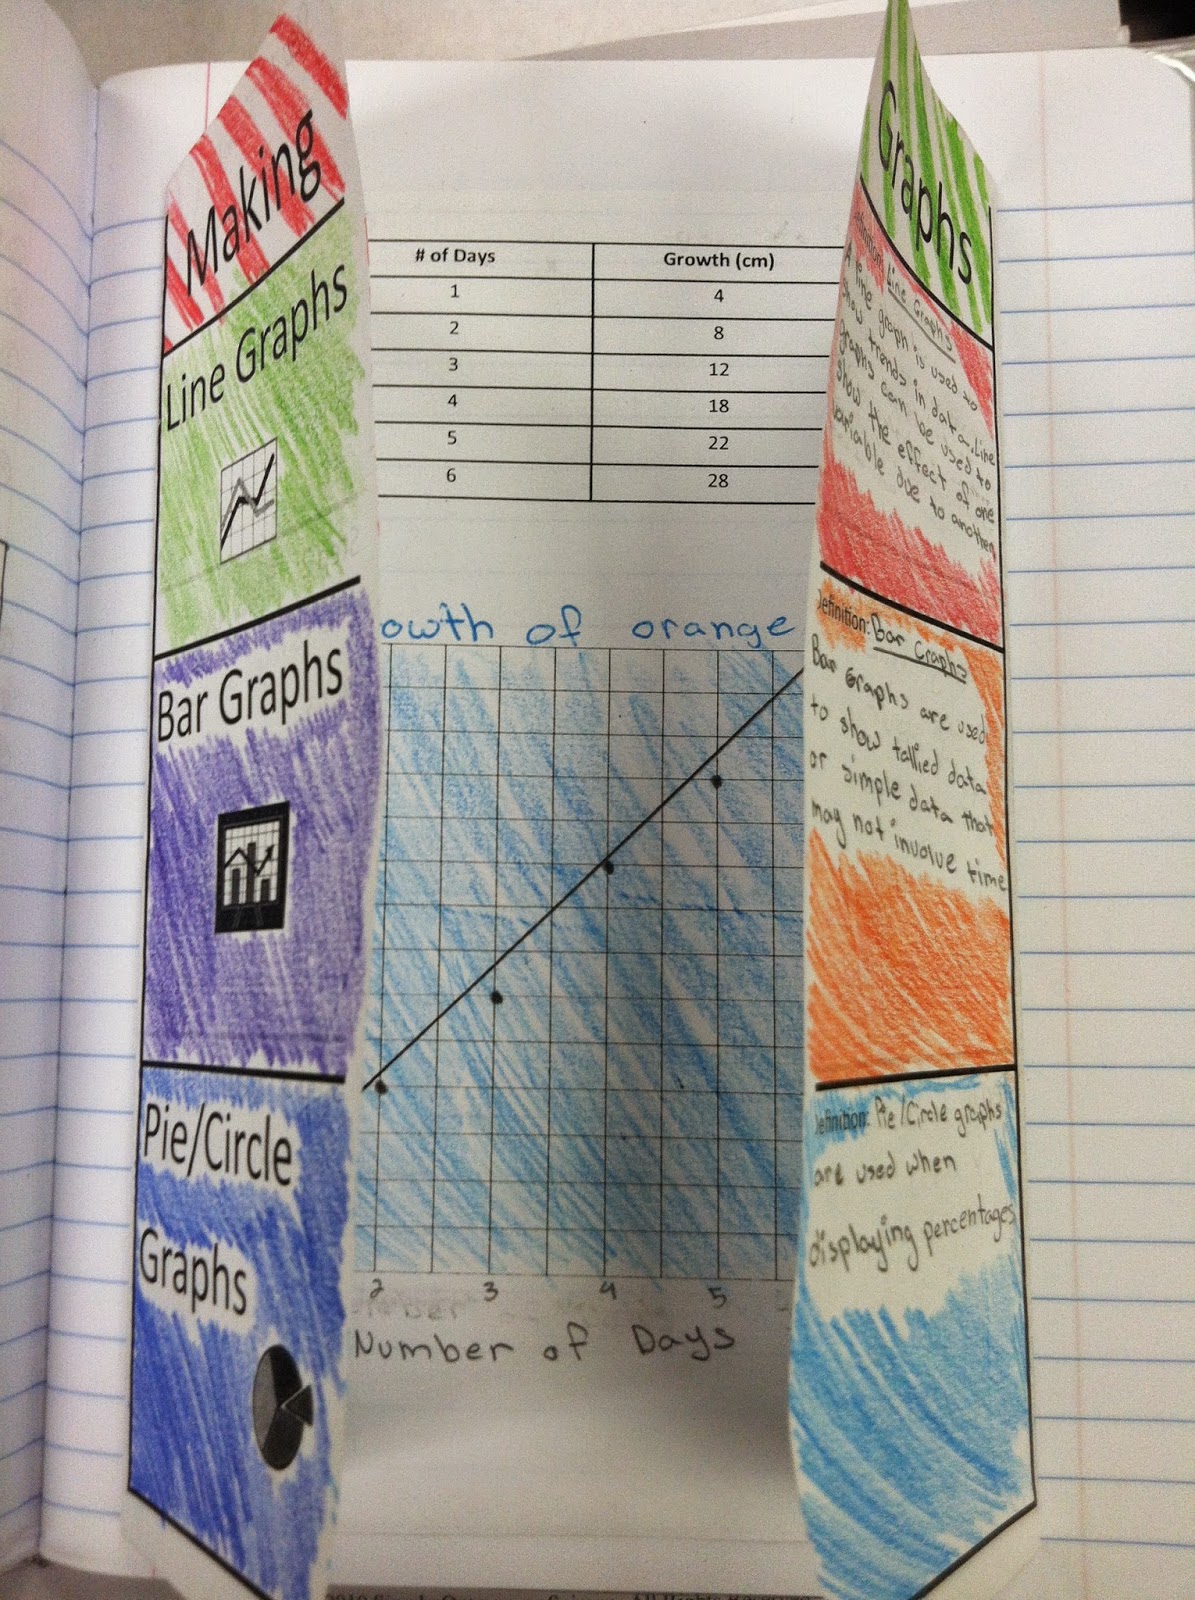 Making
Line Graphs
Bar Graphs
Pie/Circle
Graphs
# of Days Growth (cm)
1 4
2 8
3 12
4 18
5 22
6 28
owth of orange
2 3 4 5
Number of Days
Graphs
Line Graphs
A line graph is used to
show trends in data. Line
graphs can be used to
show the effect of one
variable due to another
Definition: Bar Graphs
Bar Graphs are used
to show tallied data
or simple data that
may not involve time
Definition: Pie/Circle graphs
are used when
displaying percentages